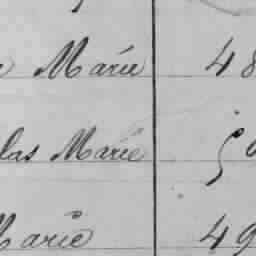 Marie 48
las Marie 5
Marie 49